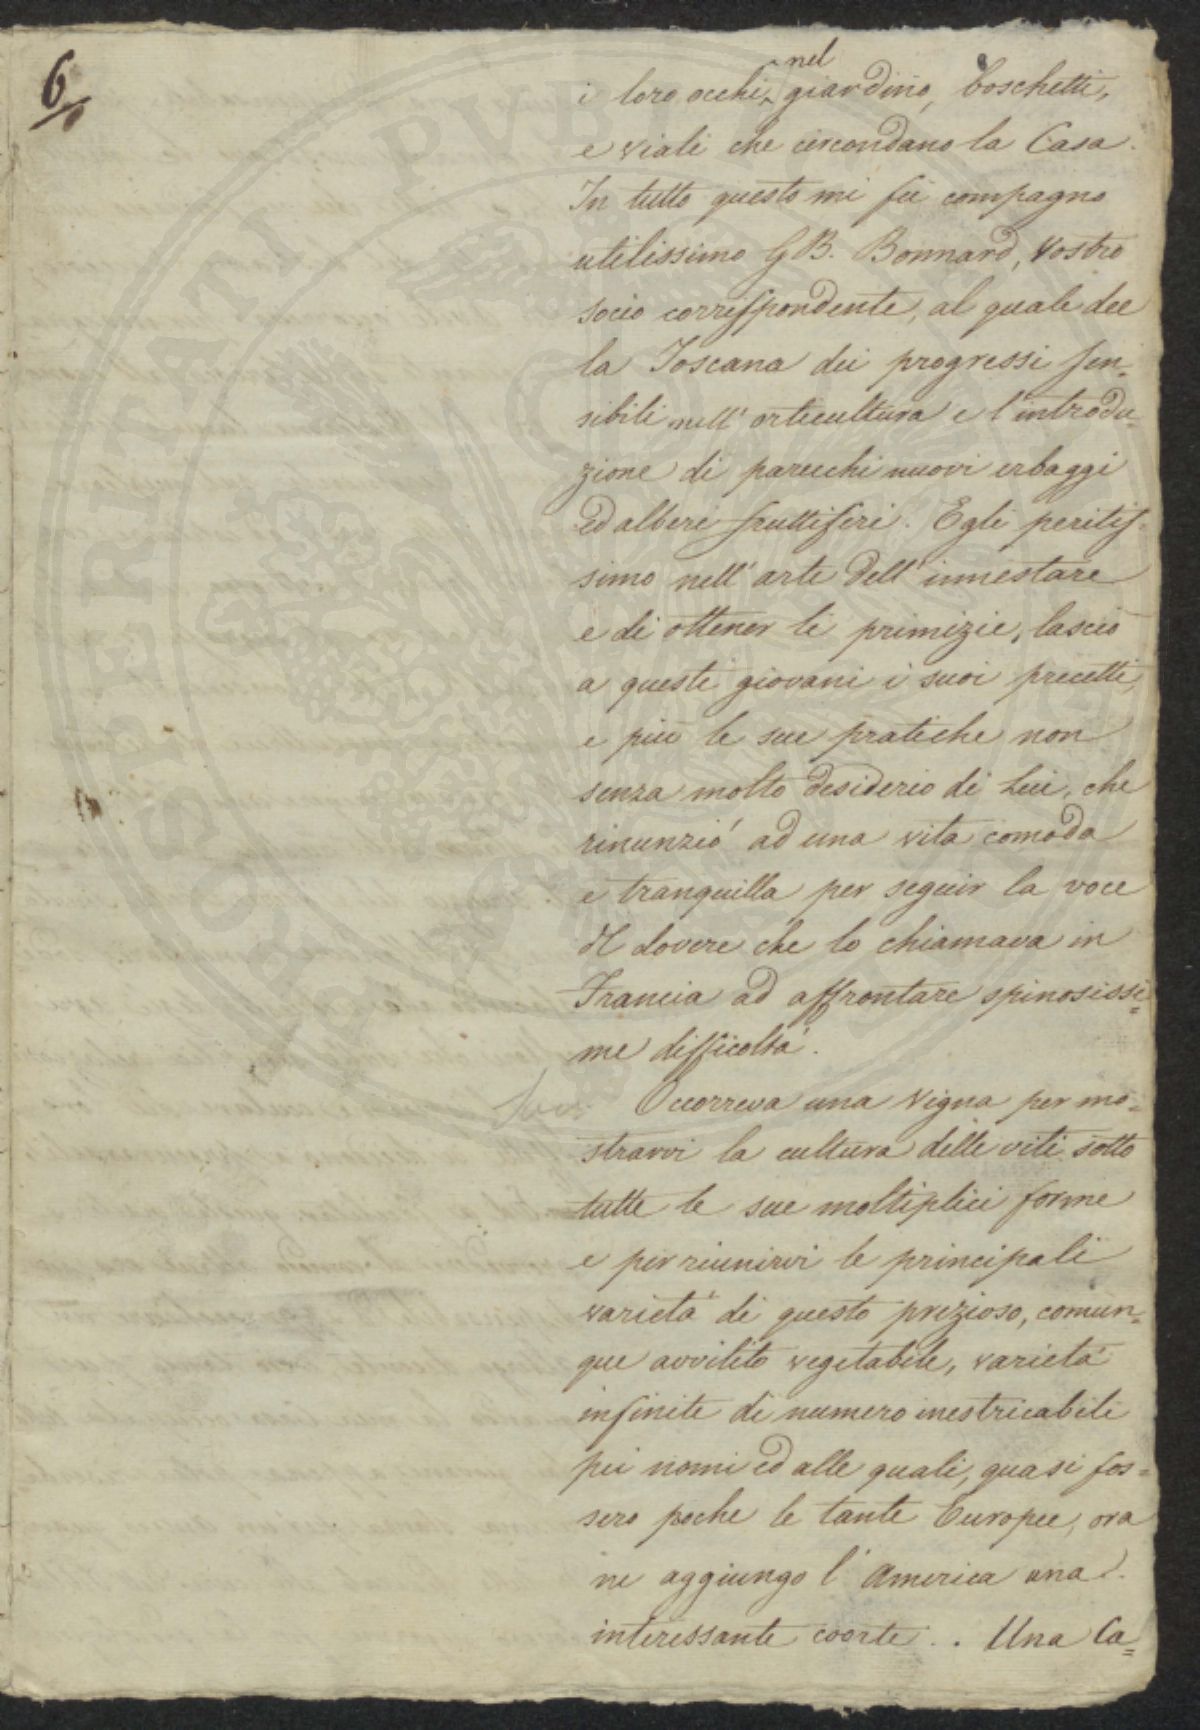 6
nel
i loro occhi, giardino, boschetti,
e viali che circondano la Casa.
In tutto questo mi fu compagno
utilissimo G B. Bonnard, Vostro
socio corrispondente, al quale dee
la Toscana dei progressi sen-
sibili nell' orticultura e l'introdu-
zione di parecchi nuovi erbaggi
ed alberi fruttiferi. Egli peritis-
simo nell' arte dell' innestare
e di ottener le primizie, lasciò
a questi giovani i suoi precetti,
e più le sue pratiche non
senza molto desiderio di Lui, che
rinunziò ad una vita comoda
e tranquilla per seguir la voce
del dovere che lo chiamava in
Francia ad affrontare spinosissi=
me difficoltà.
Occorreva una Vigna per mo=
strarvi la cultura delle viti sotto
tutte le sue moltiplici forme
e per riunirvi le principali
varietà di questo prezioso, comun=
que avvilito vegetabile, varietà
infinite di numero inestricabili
pei nomi ed alle quali, quasi fos=
sero poche le tante Europee, ora
ne aggiungo l' America una
interessante coorte . . Una Ca=
PVBLICAE
PROSPERITATI